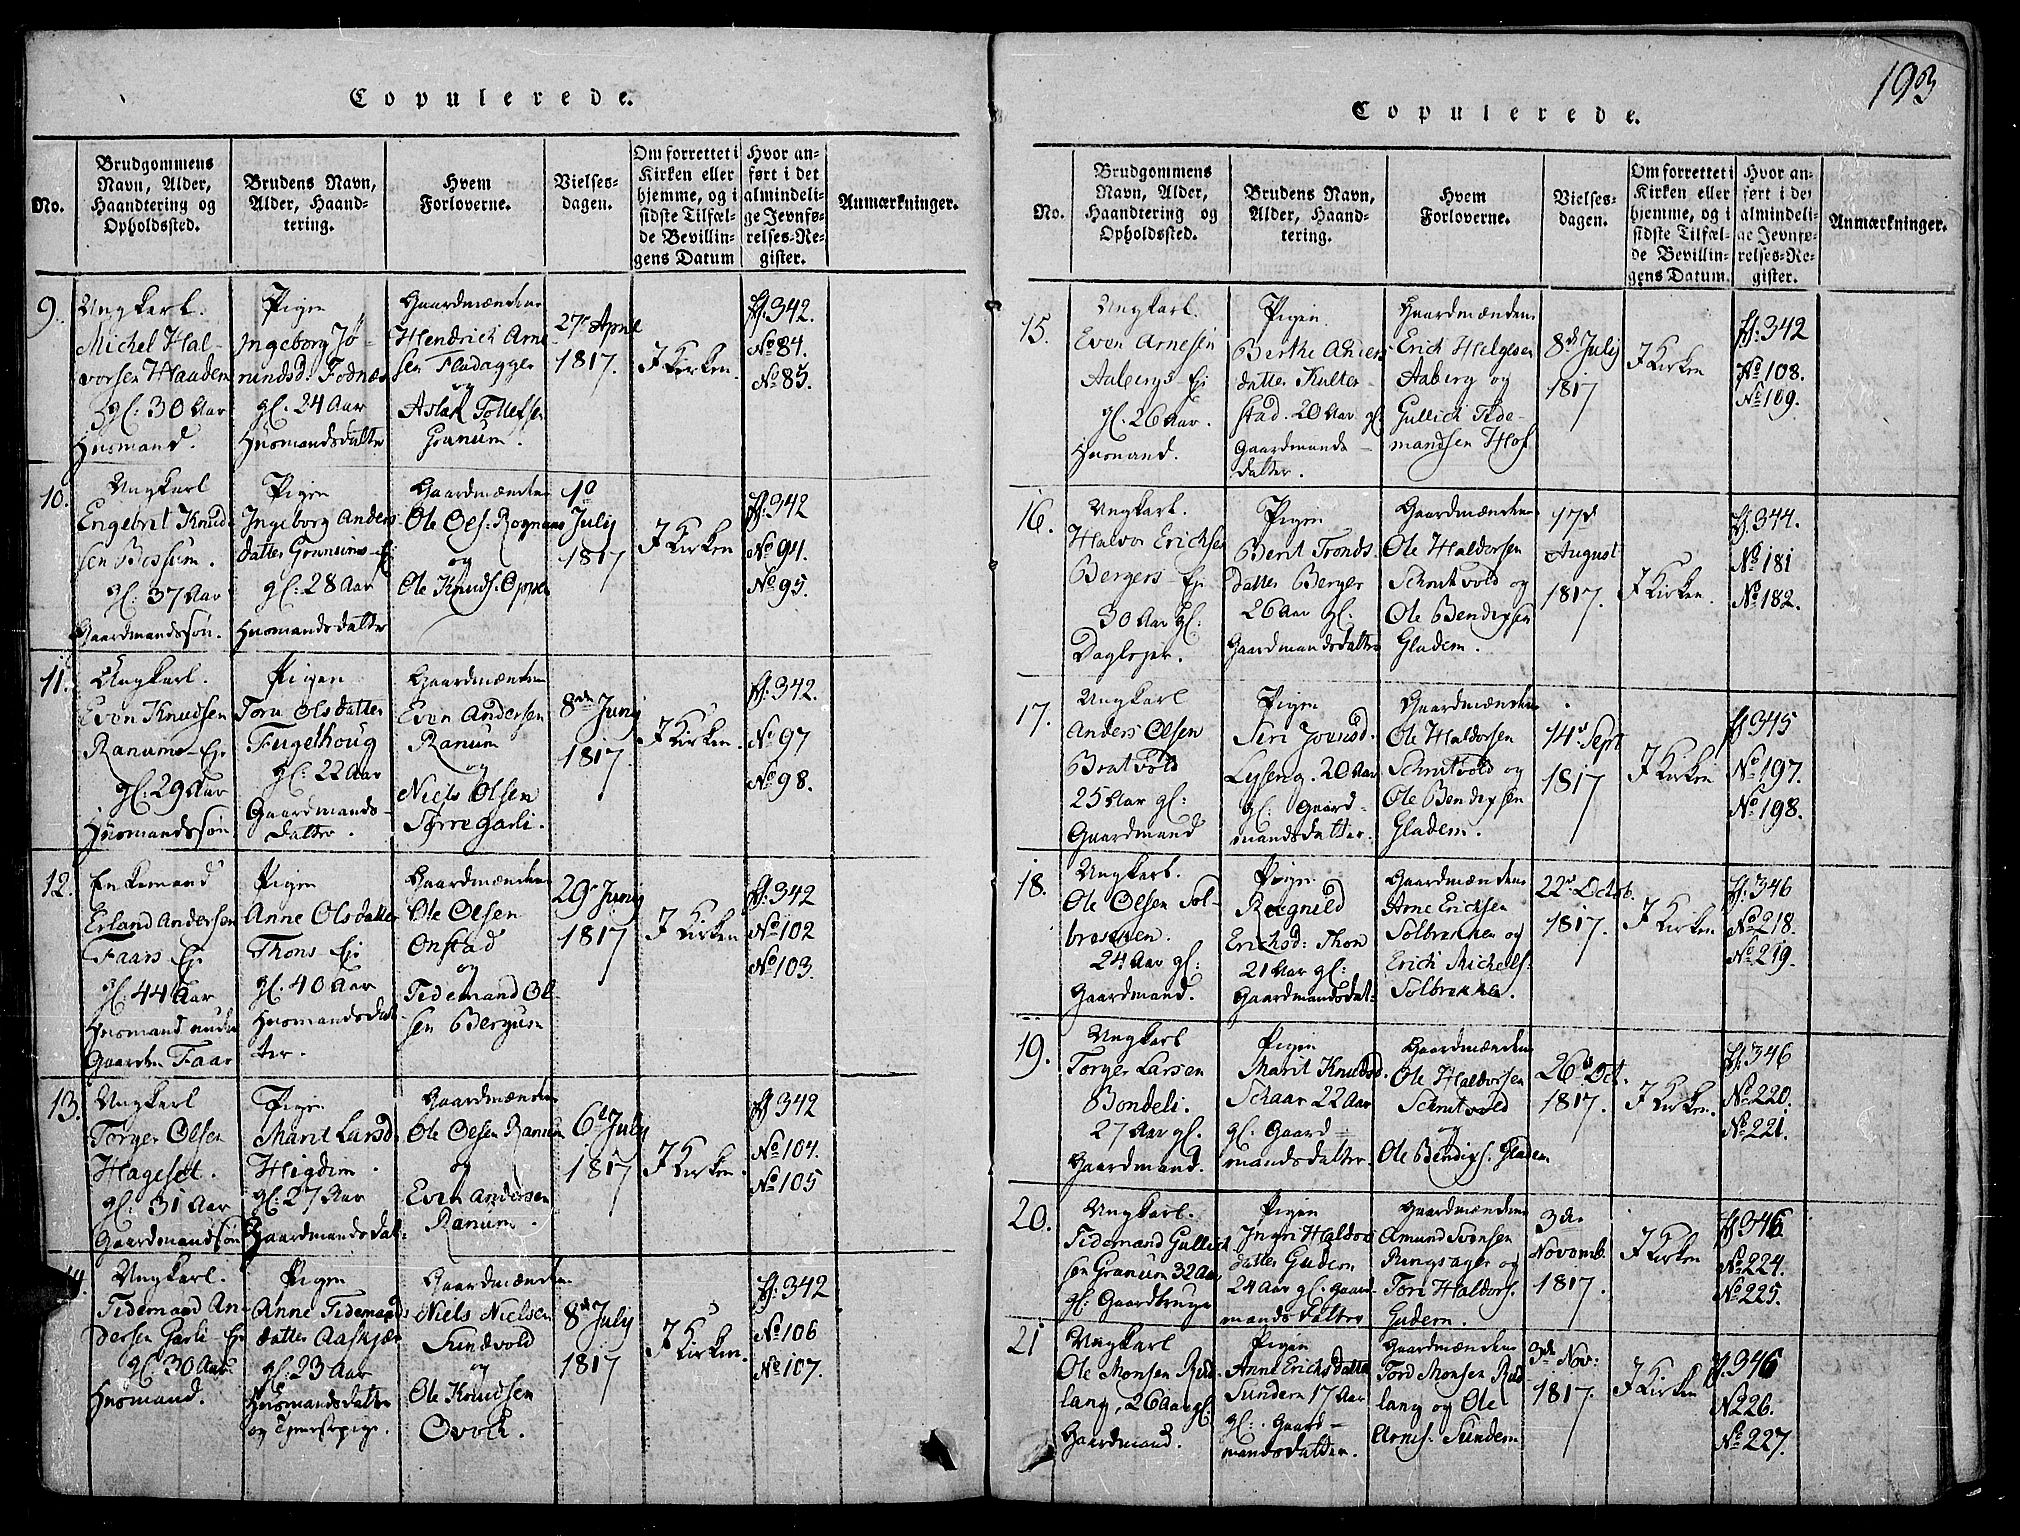 193
Copulerede.
No.
Brudgommens
Navn, Alder,
Haandtering og
Opholdssted.
Brudens Navn,
Alder, Haand-
tering.
Hvem
Forloverne.
Vielses-
dagen.
Om forrettet i
Kirken eller
hjemme, og i
sidste Tilfæl-
de Bevillin-
gens Datum
Hvor an-
ført i det
almindeli-
ge Jevnfø-
relses-Re-
gister.
Anmærkninger.
9.
Ungkarl.
Michel Hal-
vorsen Haadem
gl: 30 Aar
Husmand.
Pigen
Ingeborg Jø-
runds d: Fodnæs
gl. 24 Aar
Husmandsdatter
Gaardmændene
Hendrich Arne
sen Fladagger
og
Aslak Tollefsen
Granum.
27de April
1817.
I Kirken.
fl. 342.
No 84.
No 85.
10.
Ungkarl
Engebret Knud
sen Bessum.
gl: 37 Aar
Gaardmandssøn.
Pigen
Ingeborg Anders
datter Granums-Ej
gl: 28 Aar
Husmandsdatter
Gaardmændene
Ole Ols: Rognaas
og
Ole Knuds. Oppen
10
July
1817
I Kirken
fl. 342
No 94.
No 95.
11.
Ungkarl.
Even Knudsen
Ranums-Eje
gl: 29 Aar
Husmandssøn
Pigen
Toru Olsdatter
Fugelhoug
gl: 22 Aar
Gaardmands-
datter.
Gaardmændene
Even Andersen
Ranum
og
Niels Olsen
Tørregarli.
8de Juny
1817.
I Kirken.
fl. 342.
No 97
No 98.
12.
Enkemand
Erland Andersen
Faars Eje
gl: 44 Aar
Husmand under
Gaarden Faar
Pigen
Anne Olsdatter
Thons Eje
gl. 40 Aar
Husmandsdat
ter.
Gaardmændene
Ole Olsen
Onstad
og
Tidemand Ol-
sen Bergum
29de Juny
1817
I Kirken
fl. 342
No 102
No 103.
13.
Ungkarl
Torger Olsen
Hageset.
gl: 31 Aar
Gaardmandsøn
Pigen
Marit Larsd.
Heigdem.
gl: 27 Aar
Gaardmandsdat:
Gaardmændene
Ole Olsen Ranum
og
Even Andersen
Ranum.
6d July
1817
I Kirken.
fl 342
No 104.
No 105
14.
Ungkarl.
Tidemand An-
dersen Garli-Eje
gl. 30 Aar
Husmand.
Pigen
Anne Tidemands
datter Aaskjær
gl: 23 Aar
Husmandsdatter
og Tjenestepige.
Gaardmændene
Niels Nielsen
Sundvold
og
Ole Knudsen
Øvrek.
8de July
1817
I Kirken.
fl. 342
No 106
No 107.
Copulerede.
No.
Brudgommens
Navn, Alder,
Haandtering og
Opholdssted.
Brudens Navn,
Alder, Haand-
tering.
Hvem
Forloverne.
Vielses-
dagen.
Om forrettet i
Kirken eller
hjemme, og i
sidste Tilfæl-
de Bevillin-
gens Datum.
Hvor an-
ført i det
almindeli-
ge Jevnfø-
relses-Re-
gister.
Anmærkninger.
15.
Ungkarl.
Even Arnesen
Aabergs-Eje
gl. 26 Aar.
Husmand.
Pigen
Berthe Anders
datter Kulter-
stad. 20 Aar gl.
Gaardmands-
datter.
Gaardmændene
Erich Helgesen
Aaberg og
Gullich Tide-
mandsen Hof
8de July
1817
I Kirken
fl: 342
No 108.
No 109.
16.
Ungkarl.
Halvor Erichsen
Bergers-Eje
30 Aar gl:
Daglejer.
Pigen
Berit Tronds
datter Berger
26 Aar gl:
Gaardmandsdatter
Gaardmændene
Ole Haldorsen
Schrutvold og
Ole Bendixsen
Gladem.
17d
August
1817.
I Kirken.
fl. 344.
No 181
No 182.
17.
Ungkarl
Anders Olsen
Bratvold
25 Aar gl:
Gaardmand
Pigen
Siri Jversd.
Lyseng. 20 Aar
gl: Gaard-
mandsdatter.
Gaardmændene
Ole Haldorsen
Schrutvold og
Ole Bendixsen
Gladem.
14d Sept
1817
I Kirken
fl 345
No 197.
No 198.
18.
Ungkarl.
Ole Olsen Sol-
brækken.
24 Aar gl:
Gaardmand.
Pigen
Ragnild
Erichsd: Thon
21 Aar gl:
Gaardmandsdat-
Gaardmændene
Arne Erichsen
Solbrækken og
Erich Michels:
Solbrække.
22de Octob.
1817.
I Kirken
fl. 346
No 218.
No 219.
19.
Ungkarl
Torger Larsen
Bondeli.
27 Aar gl.
Gaardmand.
Pigen
Marit Knudsd.
Schaar 22 Aar
gl. Gaard-
mandsdatter.
Gaardmændene
Ole Haldorsen
Schrutvold
og
Ole Bendixs. Gladem.
26d Oct.
1817.
I Kirken.
fl. 346
No 220.
No 221.
20.
Ungkarl.
Tidemand Gullich
sen Granum 32 Aar
gl: Gaardbruger
Pigen
Ingri Haldors
datter Gudem
24 Aar gl. Gaard-
mandsdatter
Gaardmændene
Amund Svensen
Ringsager og
Tore Haldors.
Gudem.
3de
Novemb.
1817.
I Kirken
fl 346
No 224.
No 225.
21
Ungkarl
Ole Monsen Rud
lang, 26 Aar gl.
Gaardmand.
Pigen
Anne Erichsdatter
Sundem 17 Aar
gl: Gaard-
mandsdatter.
Gaardmændene
Tord Monsen Rud
lang og Ole
Arnes: Sundem
3de Nov:
1817.
I Kirken
fl. 346
No 226.
No 227.